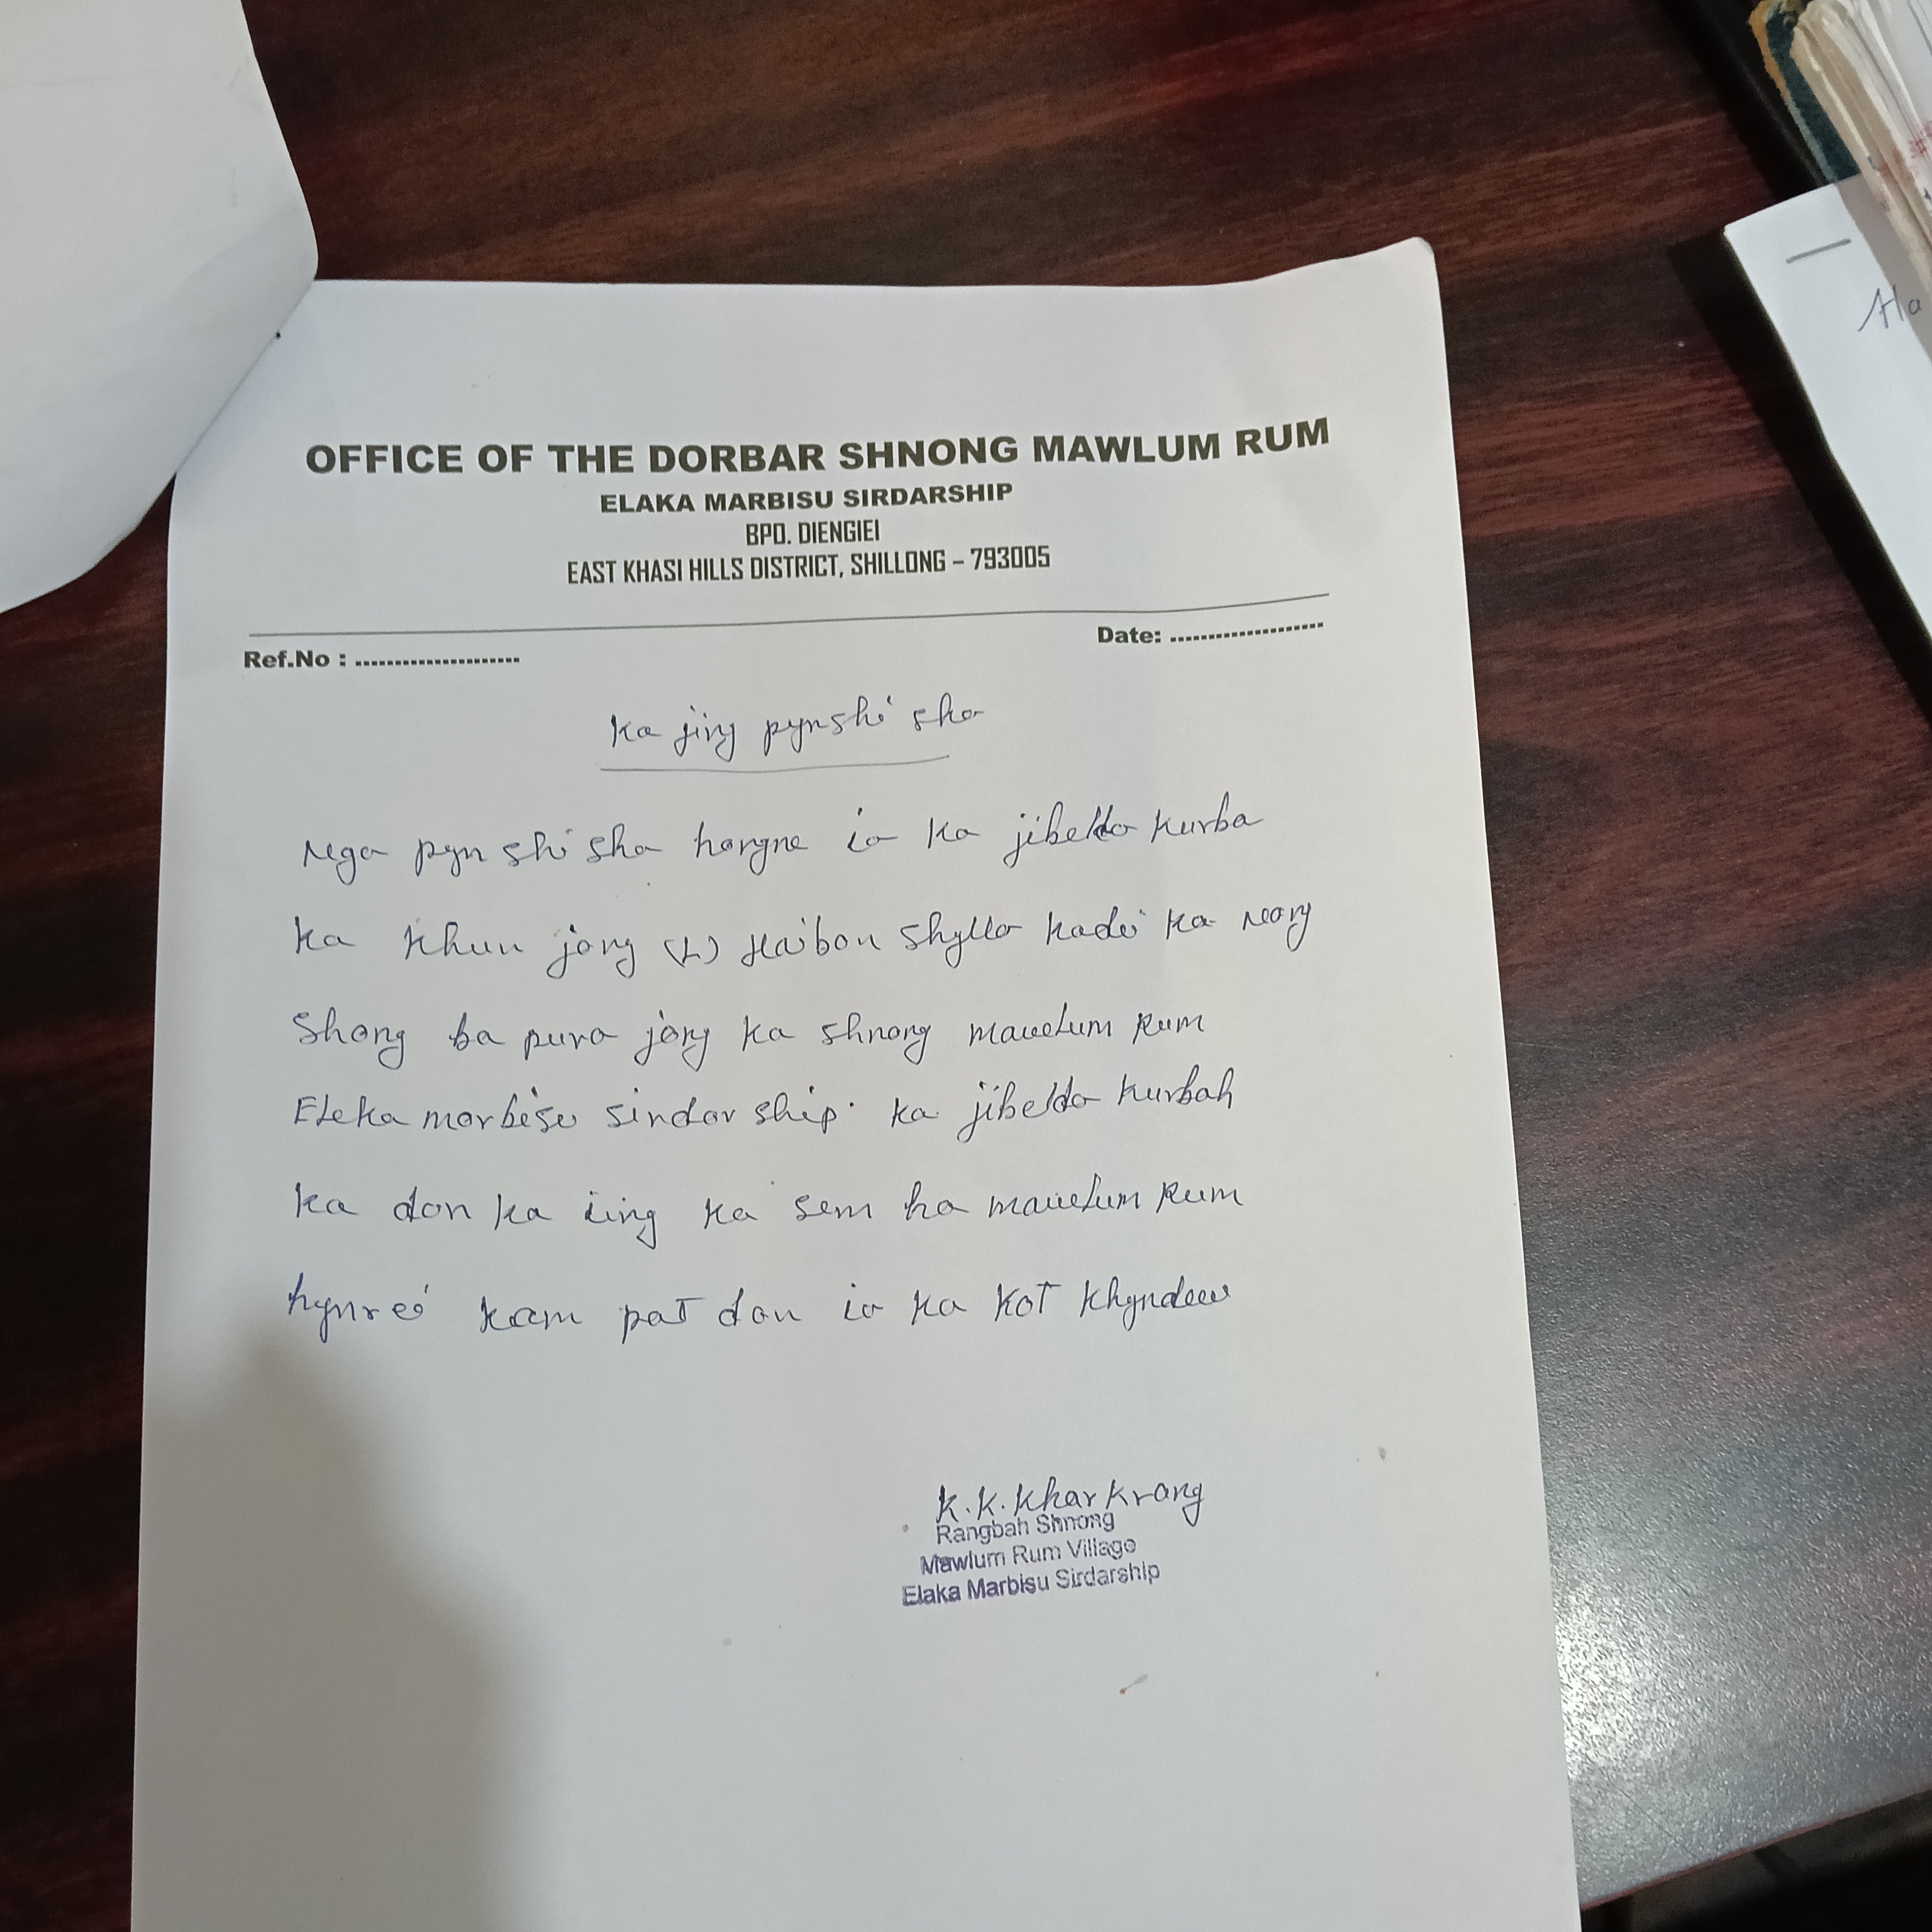 OFFICE OF THE DORBAR SHNONG MAWLUM RUM
ELAKA MARBISU SIRDARSHIP
BPO. DIENGIEI
EAST KHASI HILLS DISTRICT, SHILLONG – 793005
Date: ....................
Ref.No : .....................
Ka jing pynshi sha
Nga pyn shi sha hangne ia ka jibelda Kurba
ka khun jong (L) Haibon Shylla kadei ka nong
Shong ba pura jong ka shnong mawlum Rum
Eleka marbisu sindar ship. ka jibelda Kurbah
ka don ka iing ka sem ha mawlum Rum
hynrei kam pat don ia ka KoT Khyndew
K.K.Kharkrang
Rangbah Shnong
Mawlum Rum Village
Elaka Marbisu Sirdarship